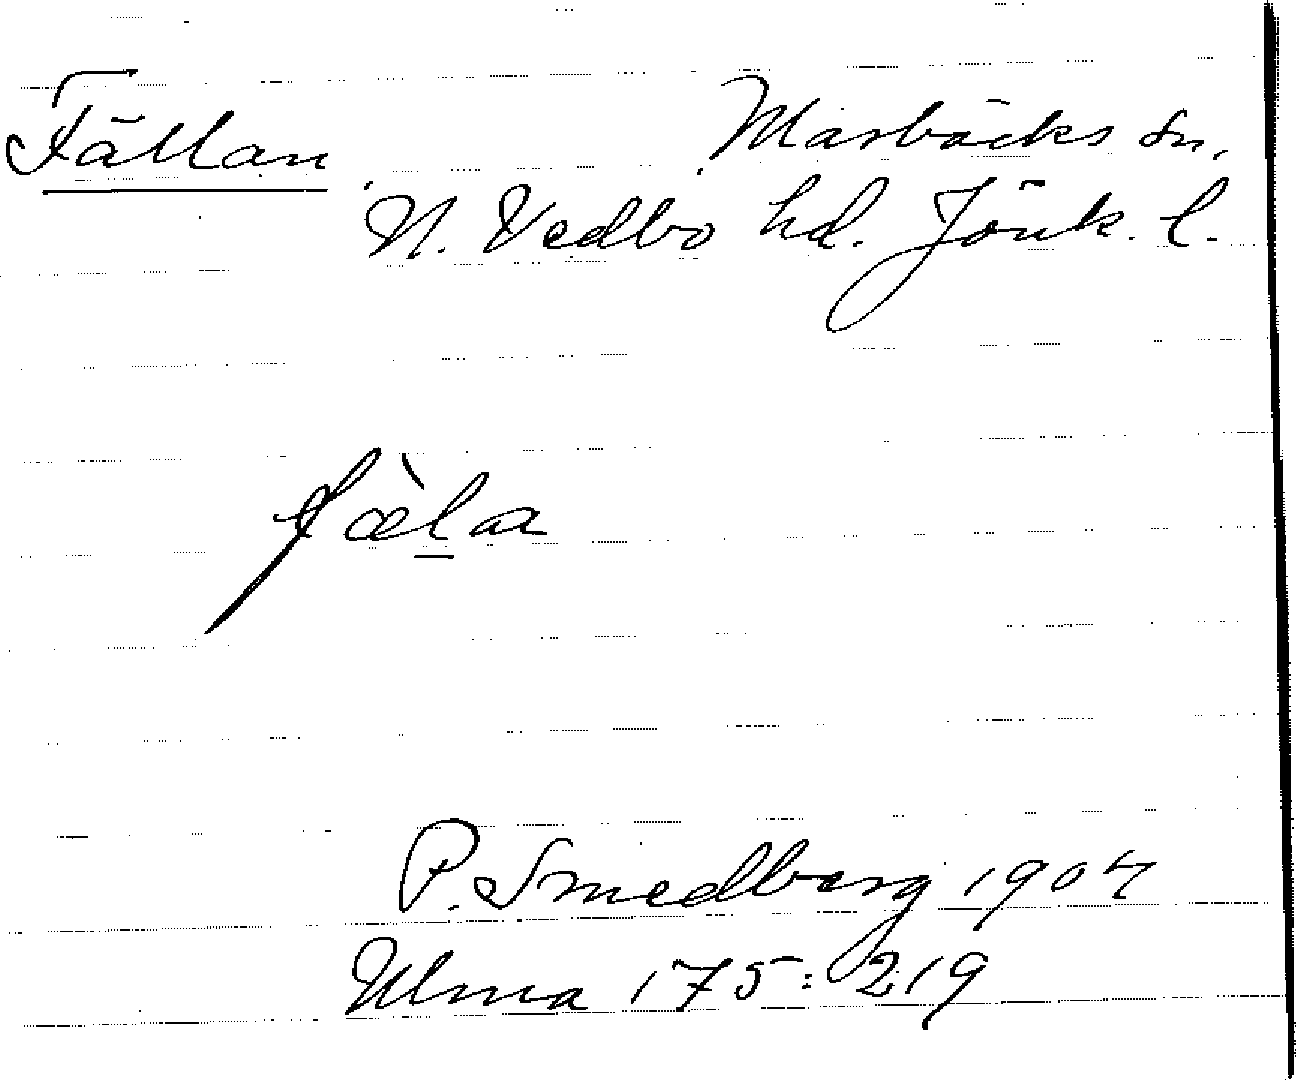 Fällan Marbäcks sn,
N. Vedbo hd. Jönk. l.
fæ̀l̲a
P. Smedberg 1907
Ulma 175:219